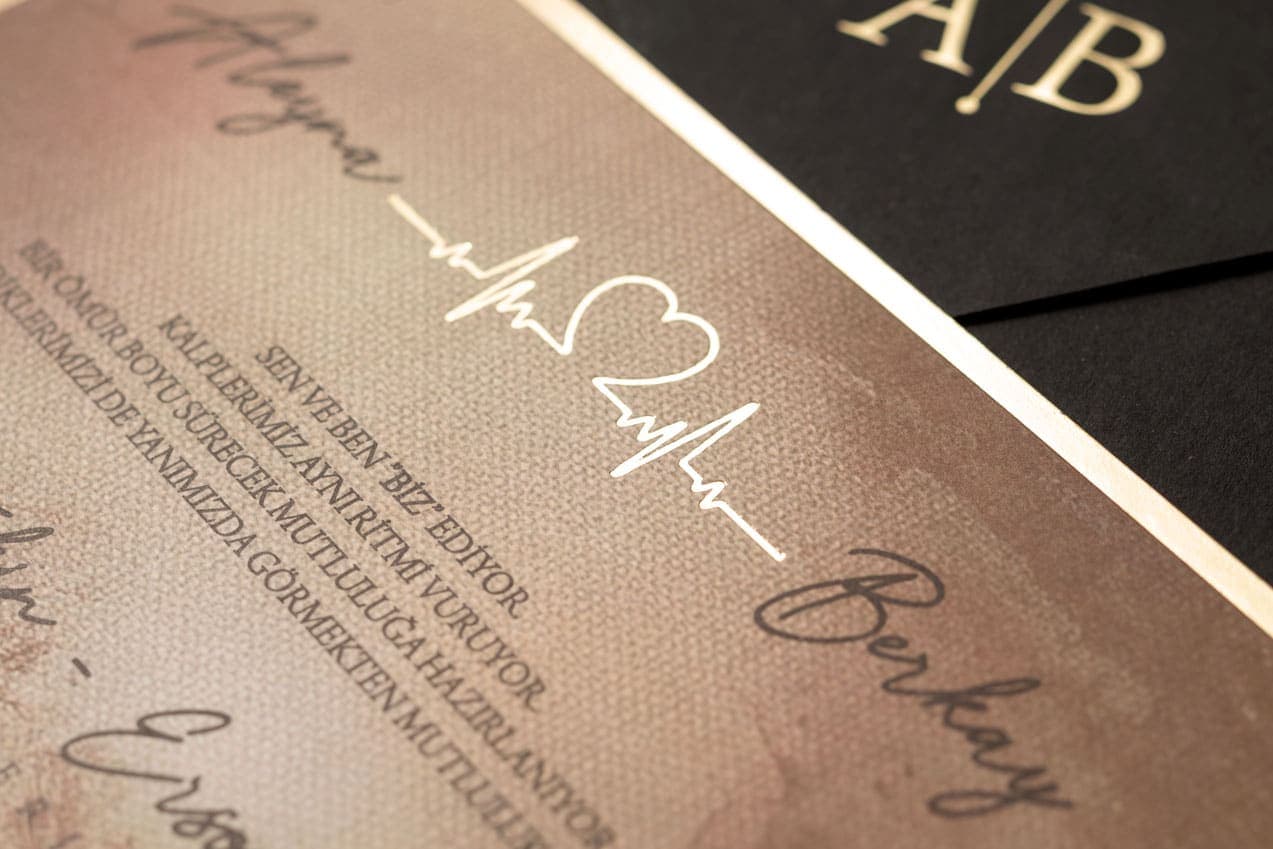 A|B
Aleyna
Berkay
SEN VE BEN "BİZ" EDİYOR
KALPLERİMİZ AYNI RİTMİ VURUYOR
BİR ÖMÜR BOYU SÜRECEK MUTLULUĞA HAZIRLANIYOR
DE YANIMIZDA GÖRMEKTEN